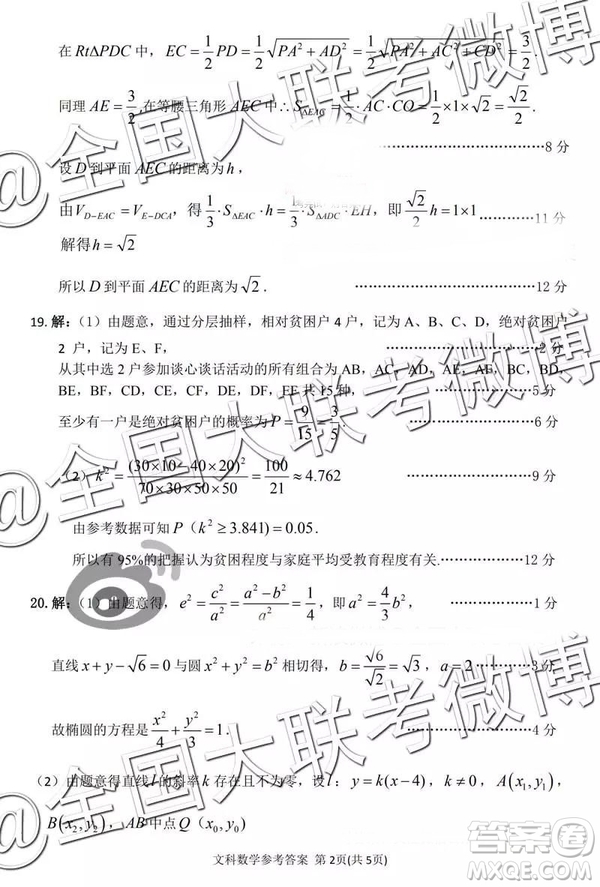 在 RtΔPDC 中，EC = 1/2 PD = 1/2 √(PA² + AD²) = 1/2 √(PA² + AC² + CD²) = 3/2.
同理 AE = 3/2, 在等腰三角形 EAC 中∴ S_ΔEAC = 1/2 · AC · CO = 1/2 × 1 × √2 = √2/2.
8 分
设 D 到平面 AEC 的距离为 h，
由 V_{D-EAC} = V_{E-DCA}，得 1/3 · S_ΔEAC · h = 1/3 · S_ΔADC · EH，即 √2/2 h = 1×1 …………11 分
解得 h = √2
所以 D 到平面 AEC 的距离为 √2. …………12 分
19. 解：（1）由题意，通过分层抽样，相对贫困户 4 户，记为 A、B、C、D，绝对贫困
2 户，记为 E、F， …………2 分
从其中选 2 户参加谈心谈话活动的所有组合为 AB，AC，AD，AE，AF，BC，
BD，BE，BF，CD，CE，CF，DE，DF，EF 共 15 种， …………5 分
至少有一户是绝对贫困户的概率为 P = 9/15 = 3/5. …………6 分
（2）k² = (30×10−40×20)²/(70×30×50×50) = 100/21 ≈ 4.762 …………9 分
由参考数据可知 P（k² ≥ 3.841) = 0.05.
所以有 95%的把握认为贫困程度与家庭平均受教育程度有关. …………12 分
20. 解：（1）由题意得，e² = c²/a² = (a²−b²)/a² = 1/4，即 a² = 4/3 b²， …………1 分
直线 x + y − √6 = 0 与圆 x² + y² = b² 相切得，b = √6/√2 = √3，a = 2 …………3 分
故椭圆的方程是 x²/4 + y²/3 = 1.
（2）由题意得直线 l 的斜率 k 存在且不为零，设 l：y = k(x−4)，k ≠ 0，A(x₁, y₁)，
B(x₂, y₂)，AB 中点 Q（x₀, y₀）
文科数学参考答案 第 2页(共 5页)
@全国大联考微博
@全国大联考微博
@全国大联考微博
答案圈
MXQE.COM